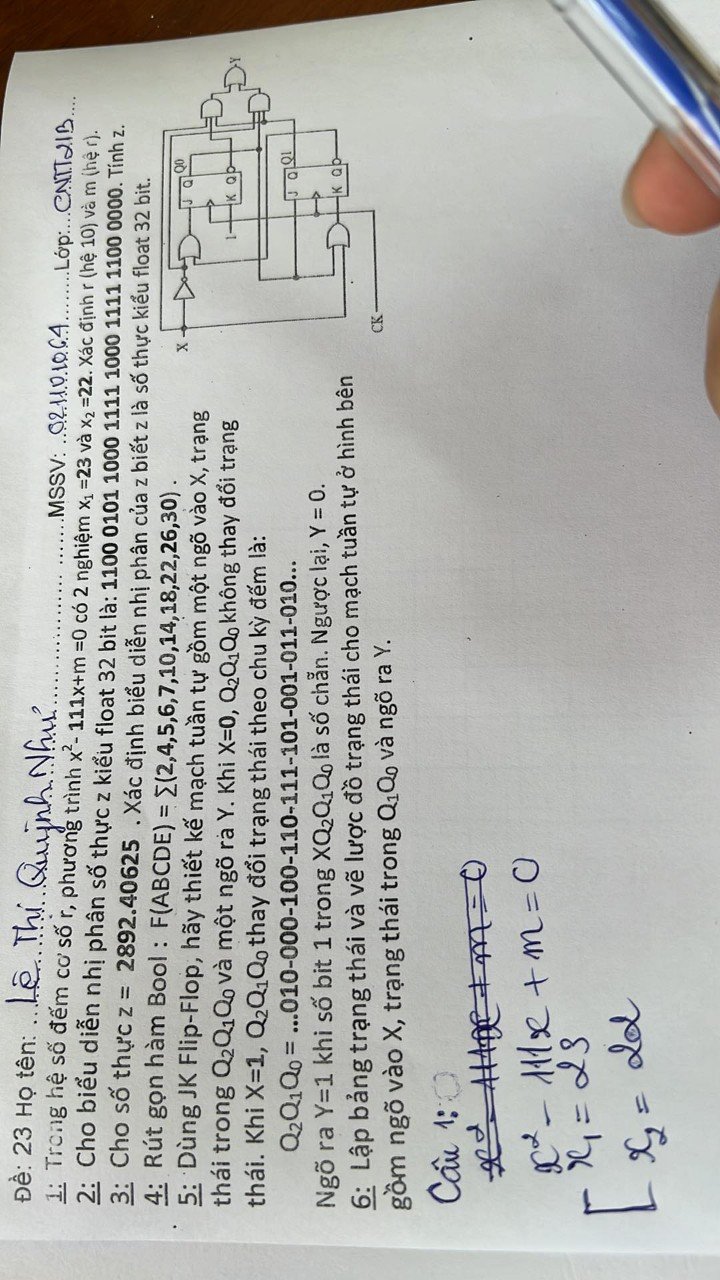 Đề: 23 Họ tên: Lê Thí Quỳnh Như MSSV: 021101064 Lớp: CNTT21B
1: Trong hệ số đếm cơ số r, phương trình x²- 111x+m =0 có 2 nghiệm x₁ =23 và x₂ =22. Xác định r (hệ 10) và m (hệ r).
2: Cho biểu diễn nhị phân số thực z kiểu float 32 bit là: 1100 0101 1000 1111 1000 1111 1100 0000. Tính z.
3: Cho số thực z = 2892.40625 . Xác định biểu diễn nhị phân của z biết z là số thực kiểu float 32 bit.
4: Rút gọn hàm Bool : F(ABCDE) = ∑(2,4,5,6,7,10,14,18,22,26,30) .
5: Dùng JK Flip-Flop, hãy thiết kế mạch tuần tự gồm một ngõ vào X, trạng
thái trong Q₂Q₁Q₀ và một ngõ ra Y. Khi X=0, Q₂Q₁Q₀ không thay đổi trạng
thái. Khi X=1, Q₂Q₁Q₀ thay đổi trạng thái theo chu kỳ đếm là:
Q₂Q₁Q₀ = ...010-000-100-110-111-101-001-011-010...
Ngõ ra Y=1 khi số bit 1 trong XQ₂Q₁Q₀ là số chẵn. Ngược lại, Y = 0.
6: Lập bảng trạng thái và vẽ lược đồ trạng thái cho mạch tuần tự ở hình bên
gồm ngõ vào X, trạng thái trong Q₁Q₀ và ngõ ra Y.
X
J Q Q0
1
K Q
Y
J Q Q1
K Q
CK
Câu 1:
x² - 111x + m = 0
x² - 111x + m = 0
x₁ = 23
x₂ = 22